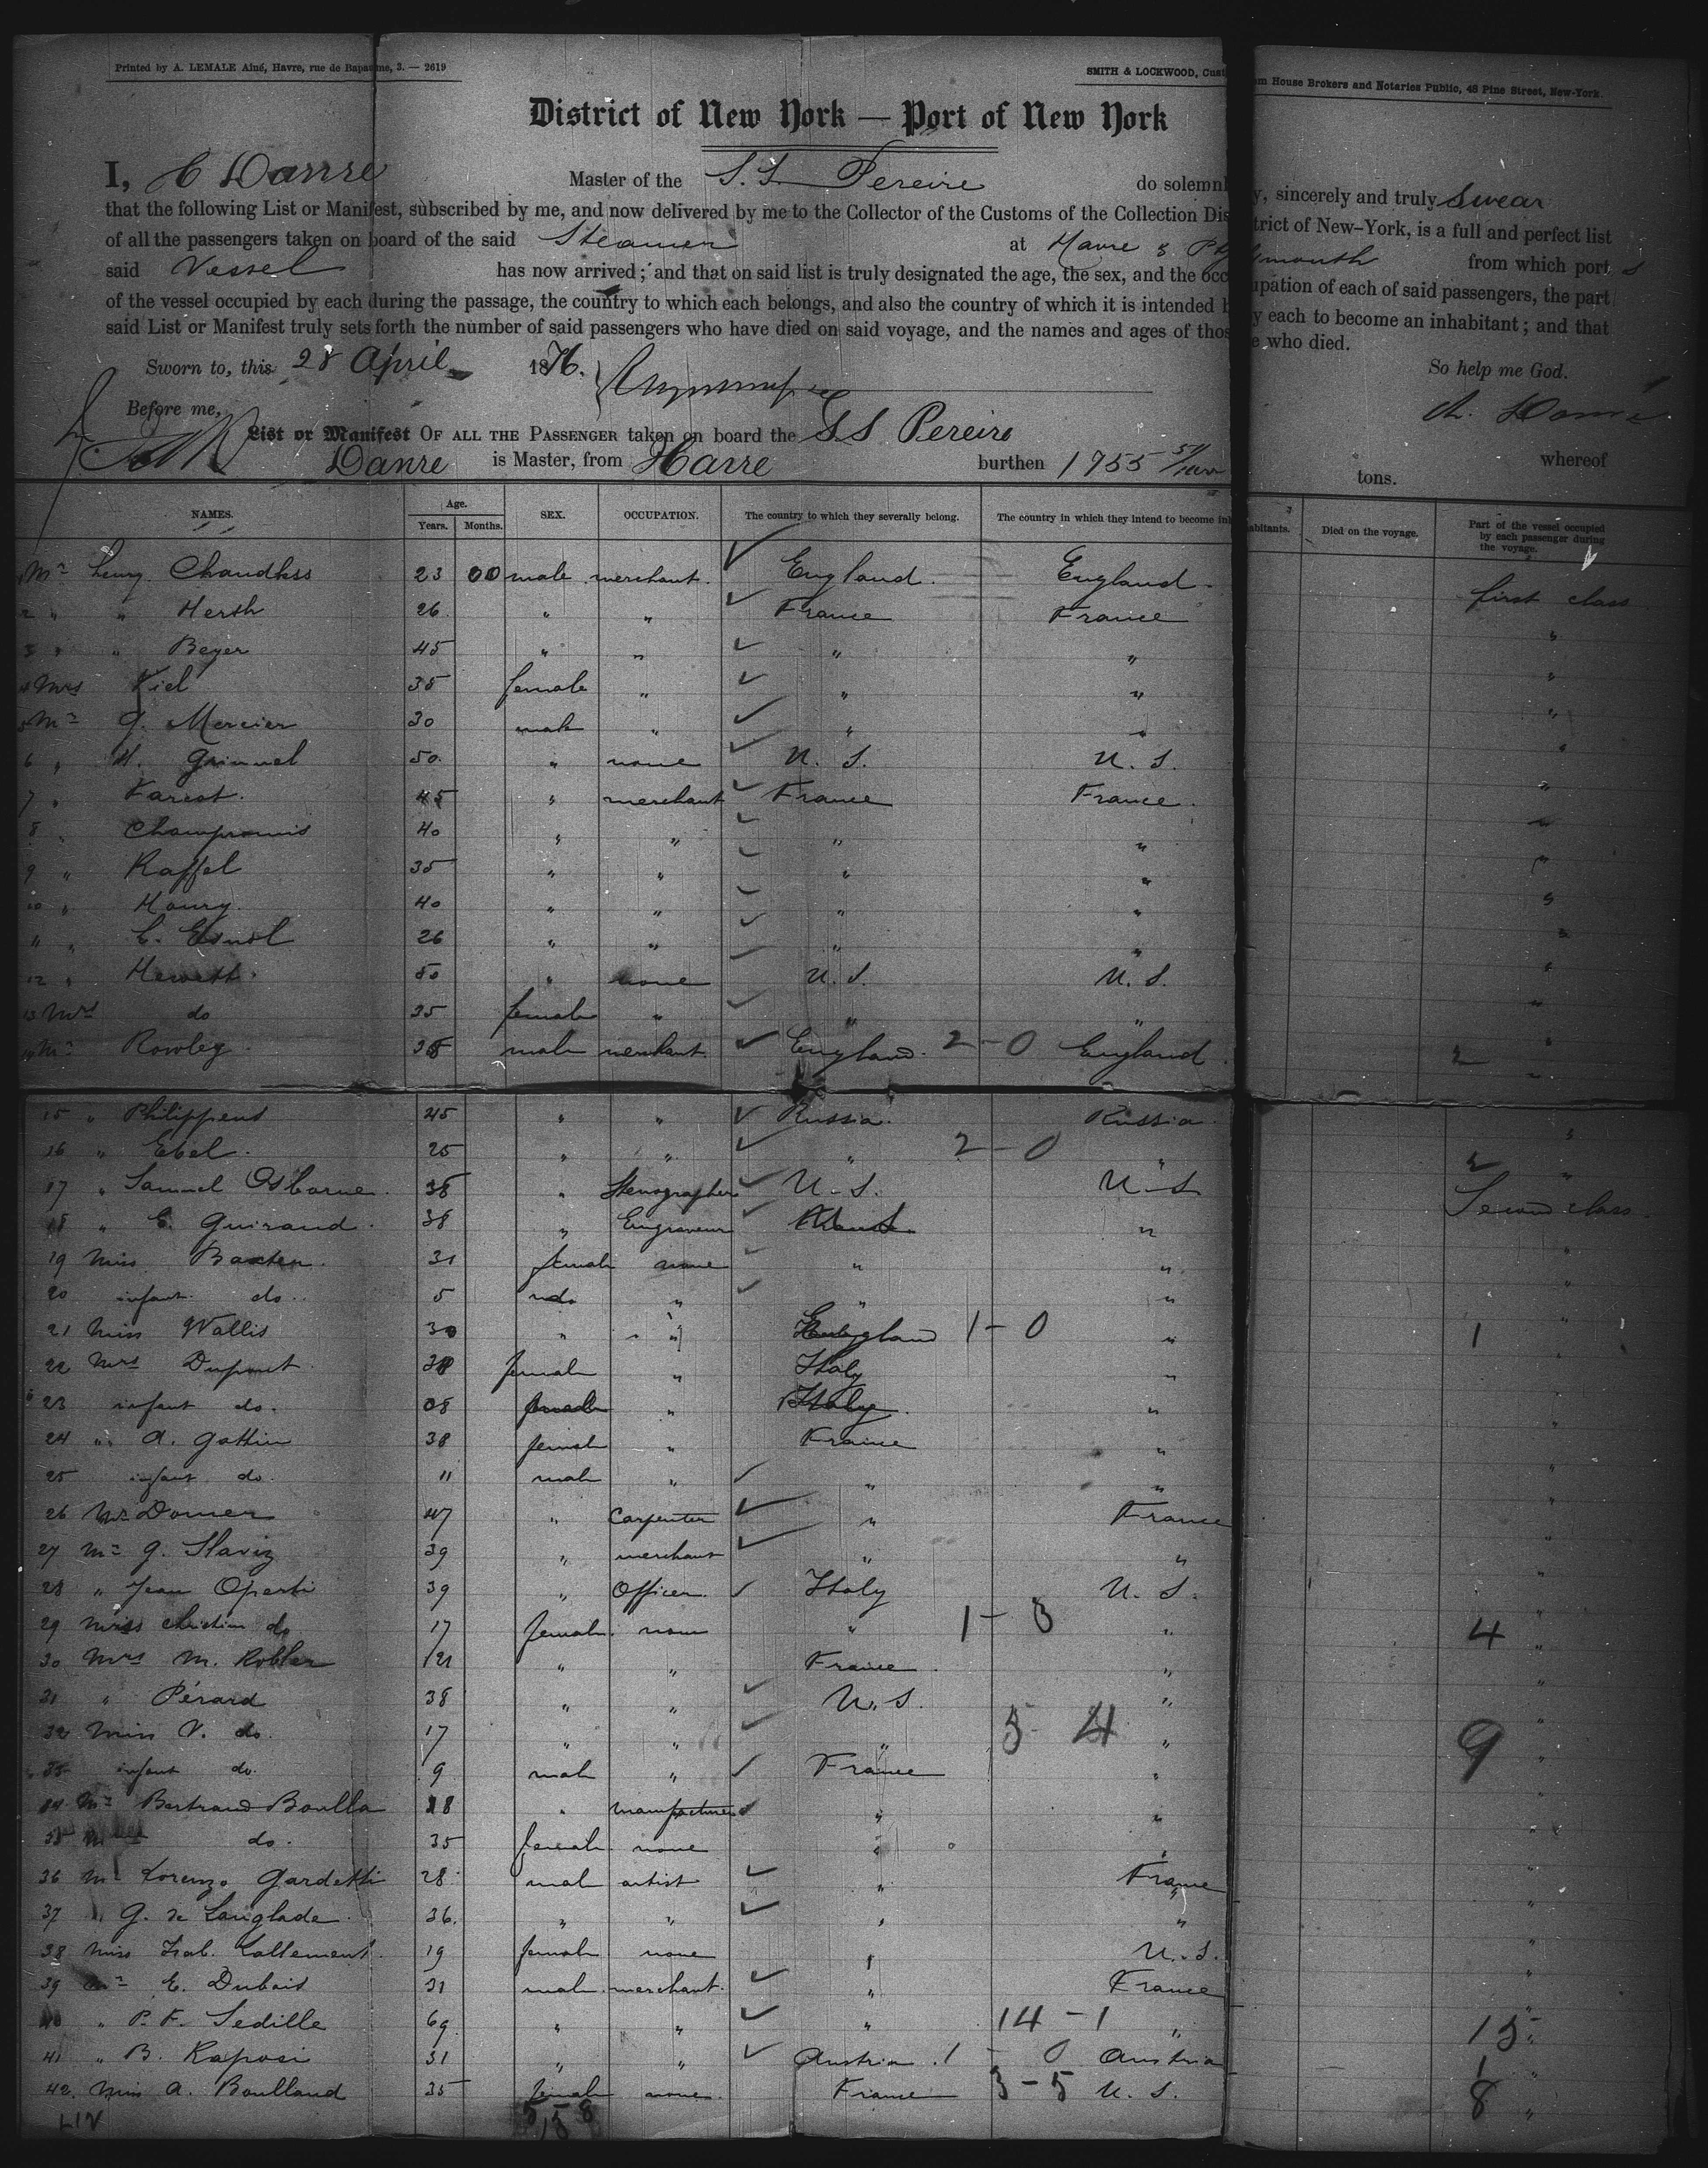 Printed by A. LEMALE Aîné, Havre, rue de Bapaume, 3. — 2619
SMITH & LOCKWOOD, Custom House Brokers and Notaries Public, 48 Pine Street, New-York.
District of New York — Port of New York
I, C Danre Master of the S.S. Pereire do solemnly, sincerely and truly Swear
that the following List or Manifest, subscribed by me, and now delivered by me to the Collector of the Customs of the Collection District of New-York, is a full and perfect list
of all the passengers taken on board of the said Steamer at Havre & Plymouth from which port s
said Vessel has now arrived; and that on said list is truly designated the age, the sex, and the occupation of each of said passengers, the part
of the vessel occupied by each during the passage, the country to which each belongs, and also the country of which it is intended by each to become an inhabitant; and that
said List or Manifest truly sets forth the number of said passengers who have died on said voyage, and the names and ages of those who died.
Sworn to, this 28 April 1876. So help me God.
Before me,
List or Manifest OF ALL THE PASSENGER taken on board the SS Pereire whereof
Danre is Master, from Havre burthen 1955 tons.
NAMES. Age. Years. Months. SEX. OCCUPATION. The country to which they severally belong. The country in which they intend to become inhabitants. Died on the voyage. Part of the vessel occupied by each passenger during the voyage.
Mr Henry Chandless 23 00 male merchant. England. England. first class
2 " " Hersh 26 " " France France "
3 " " Beyer 45 " " " " "
4 Mrs Kiel 35 female " " " "
5 Mr G. Mercier 30 male " " " "
6 " H. Grinnel 50. " none U. S. U. S. "
7 " Farcot. 45 " merchant France France. "
8 " Champromis 40 " " " " "
9 " Raffel 35 " " " " "
10 " Houry. 40 " " " " "
11 " 26 " " " " "
12 " 50 " none U. S. U. S. "
13 Mrs do 35 female " " " "
14 Mr Rowley. 35 male merchant. England. 2-0 England. 2 "
15 " Philippeus 45 " " Russia. Russia. "
16 " Ebel. 25 " " " 2-0 " 2 "
17 " Samuel Osborne. 38 " Stenographer U. S. U. S. Second class.
18 " E. Guiraud. 38 " Engraveur "
19 Miss Baxter. 31 female none " " "
20 infant do. 5 " " " "
21 Miss Wallis 30 " " England 1-0 " 1 "
22 Mrs Dupont. 38 female " Italy " "
23 infant do. 08 " " "
24 " A. Gattin 38 female " France " "
25 infant do. 11 male " " " "
26 Mr Domer 47 " Carpenter " France "
27 Mr G. Slaviz 39 " merchant " " "
28 " Jean Operti 39 " Officer. Italy U. S. "
29 Miss Christin do 17 female. none " 1-3 " 4 "
30 Mrs M. Robler 21 " " France. " "
31 " Pérard 38 " " U. S. " "
32 Miss V. do. 17 " " " 5-4 " 9 "
33 infant do. 9 male " France " "
34 Mr Bertrand Boulla 28 " manufacturer " " "
35 do. 35 female none " " "
36 Mr Lorenzo Gardetti 28 male artist " France "
37 " G. de Langlade. 36. " " " " "
38 Miss Isab. Lallement. 19 female none " U. S. "
39 Mr E. Dubois 31 male. merchant. " France "
40 " P. F. Sedille 69. " " " 14-1 " 15 "
41 " B. Kaposi 31 " " Austria. 1-0 Austria 1 "
42. Miss A. Boulland 35 female none. France 3-5 U. S. 8 "
LIV